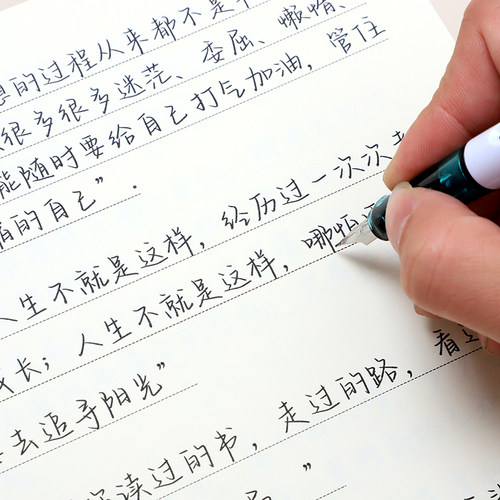 想的过程从来都不是
很多很多迷茫、委屈、懒惰、
能随时要给自己打气加油，管住
的自己”.
人生不就是这样，经历过一次次
长；人生不就是这样，哪怕
去追寻阳光”
读过的书，走过的路，看
”